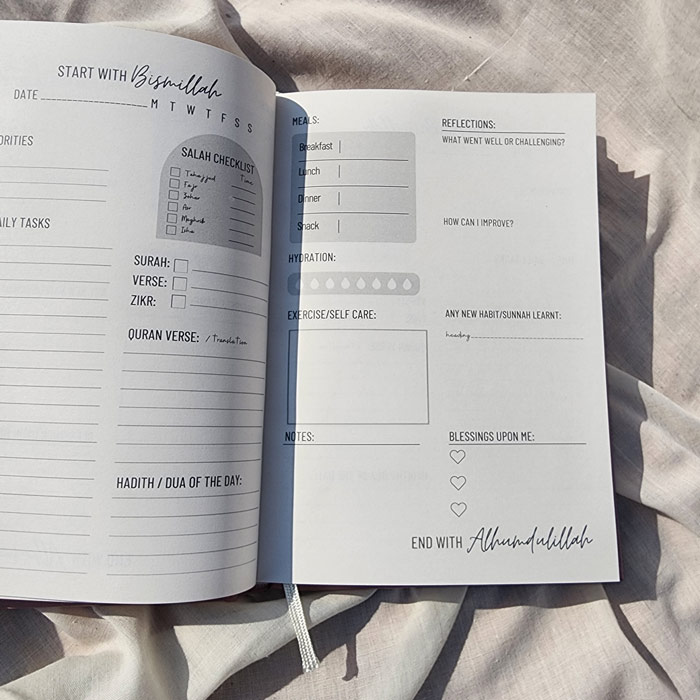 START WITH Bismillah
DATE
M T W T F S S
ORITIES
SALAH CHECKLIST
Time
Tahajjud
Fajr
Zohar
Asr
Maghrib
Isha
ILY TASKS
SURAH:
VERSE:
ZIKR:
QURAN VERSE: / Translation
HADITH / DUA OF THE DAY:
MEALS:
Breakfast
Lunch
Dinner
Snack
HYDRATION:
EXERCISE/SELF CARE:
NOTES:
REFLECTIONS:
WHAT WENT WELL OR CHALLENGING?
HOW CAN I IMPROVE?
ANY NEW HABIT/SUNNAH LEARNT:
heading
BLESSINGS UPON ME:
END WITH Alhumdulillah